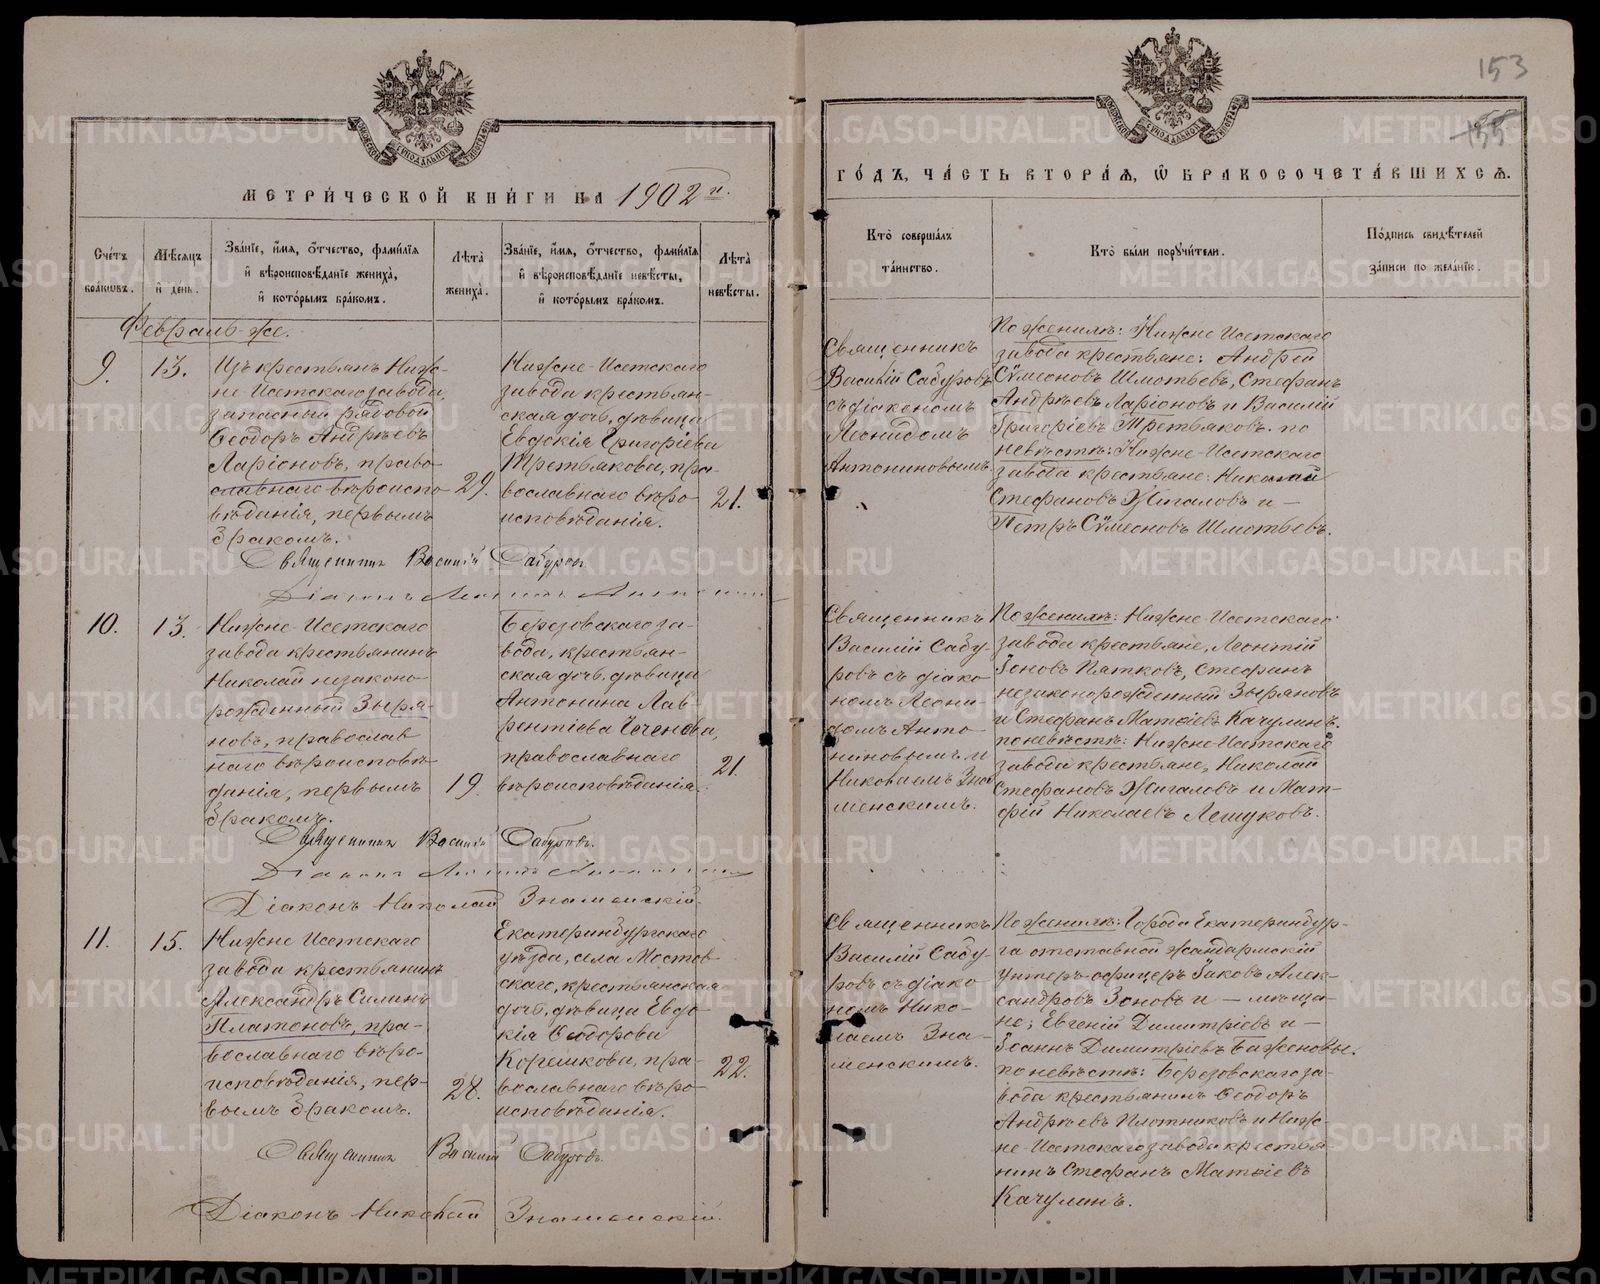 153
155
МЕТРИ́ЧЕСКОЙ КНИ́ГИ НА 1902 г.
ГО́ДЪ, ЧА́СТЬ ВТОРА́Я, Ѡ БРАКОСОЧЕТА́ВШИХСЯ.
Сче́тъ бра́ковъ.
Мѣ́сяцъ и де́нь.
Зва́нїе, и́мя, о́тчество, фами́лїя
и вѣроисповѣ́данїе жениха̀,
и кото́рымъ бра́комъ.
Лѣ́та жениха̀.
Зва́нїе, и́мя, о́тчество, фами́лїя
и вѣроисповѣ́данїе невѣ́сты,
и кото́рымъ бра́комъ.
Лѣ́та невѣ́сты.
Кто̀ соверша́лъ
та́инство.
Кто̀ бы́ли поручи́тели.
По́дпись свидѣ́телей
за́писи по жела́нїю.
Февраль-же.
9.
13.
Изъ крестьянъ Ниж-
не-Исетскаго завода,
запасный рядовой
Ѳеодоръ Андреевъ
Ларіоновъ, право-
славнаго вѣроиспо-
вѣданія, первымъ
бракомъ.
29.
Нижне-Исетскаго
завода крестьян-
ская дочь, дѣвица
Евдокія Григоріева
Третьякова, пра-
вославнаго вѣро-
исповѣданія.
21.
Священникъ
Василій Сабуровъ
съ діакономъ
Леонидомъ
Антониновымъ.
По женихѣ: Нижне Исетскаго
завода крестьяне: Андрей
Сѵмеоновъ Шмотьевъ, Стефанъ
Андреевъ Ларіоновъ и Василій
Григоріевъ Третьяковъ. по
невѣстѣ: Нижне-Исетскаго
завода крестьяне: Николай
Стефановъ Жигаловъ и —
Петръ Сѵмеоновъ Шмотьевъ.
Священникъ Василій Сабуровъ
Діаконъ Леонидъ Антонинов
10.
13.
Нижне-Исетскаго
завода крестьянинъ
Николай незаконо-
рожденный Зыря-
новъ, православ
наго вѣроисповѣ-
данія, первымъ
бракомъ.
19.
Березовскаго за-
вода, крестьян-
ская дочь, дѣвица
Антонина Лав-
рентіева Чеченова,
православнаго
вѣроисповѣданія.
21.
Священникъ
Василій Сабу-
ровъ съ діако-
номъ Леони-
домъ Анто-
ниновымъ и
Николаемъ Зна-
менскимъ.
По женихѣ: Нижне-Исетскаго
завода крестьяне, Леонтій
Іоновъ Пятковъ, Стефанъ
незаконорожденный Зыряновъ
и Стефанъ Матѳіевъ Качулинъ.
по невѣстѣ: Нижне-Исетскаго
завода крестьяне, Николай
Стефановъ Жигаловъ и Мат-
фій Николаевъ Лешуковъ.
Священникъ Василій Сабуровъ.
Діаконъ Леонидъ Антонинов
Діаконъ Николай Знаменскій.
11.
15.
Нижне Исетскаго
завода крестьянинъ
Александръ Силинъ
Платоновъ, пра-
вославнаго вѣро-
исповѣданія, пер-
вымъ бракомъ.
28.
Екатеринбургскаго
уѣзда, села Мостов-
скаго, крестьянская
дочь, дѣвица Евдо-
кія Ѳеодорова
Корешкова, пра-
вославнаго вѣро-
исповѣданія.
22.
Священникъ
Василій Сабу-
ровъ съ діако-
номъ Нико-
лаемъ Зна-
менскимъ.
По женихѣ: Города Екатеринбур-
га отставной жандармскій
унтеръ-офицеръ Іаковъ Алек-
сандровъ Зоновъ и — мѣща-
не; Евгеній Димитріевъ и —
Іоаннъ Димитріевъ Баженовы.
по невѣстѣ: Березовскаго за-
вода крестьянинъ Ѳеодоръ
Андреевъ Плотниковъ и Ниж-
не-Исетскаго завода крестья-
нинъ Стефанъ Матѳіевъ
Качулинъ.
Священникъ Василій Сабуровъ
Діаконъ Николай Знаменскій.